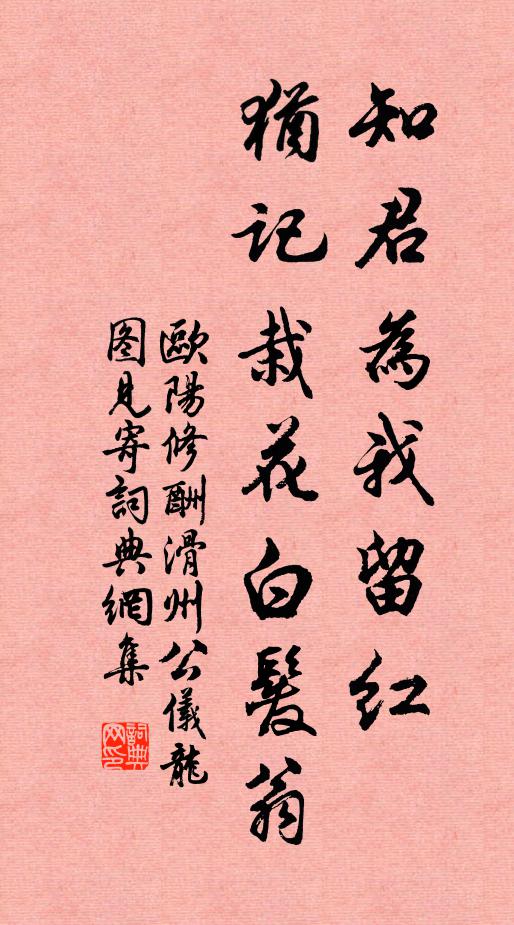 知君為我留紅
猶記栽花白髮翁
歐陽修酬滑州公儀龍
图見寄詞典網集
詞典
网印